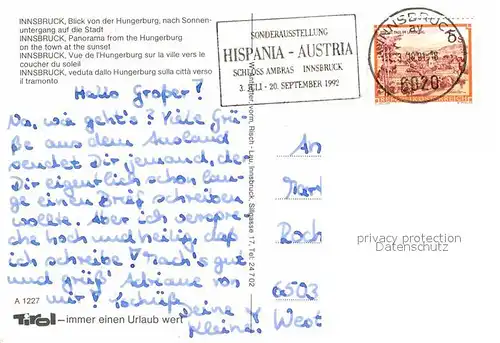 INNSBRUCK, Blick von der Hungerburg, nach Sonnen-
untergang auf die Stadt
INNSBRUCK, Panorama from the Hungerburg
on the town at the sunset
INNSBRUCK, Vue de l'Hungerburg sur la ville vers le
coucher du soleil
INNSBRUCK, veduta dallo Hungerburg sulla città verso
il tramonto
SONDERAUSSTELLUNG
HISPANIA - AUSTRIA
SCHLOSS AMBRAS INNSBRUCK
3. JULI - 20. SEPTEMBER 1992
INNSBRUCK
6020
Hallo Großer!
Na, wie geht's? Viele Grü-
ße aus dem Ausland
sendet Dir jemand, der
Dir eigentlich schon lan-
ge einen Brief schreiben
wollte. Aber ich verspre-
che hoch und heilig, daß
ich schreibe! Mach's gut
und grüß' Adriane von
mir! Tschüß
Deine
Kleine!
An
Roch
6503
West
privacy protection
Datenschutz
Risch-Lau, Innsbruck, Sillgasse 17, Tel. 24 7 02
A 1227
Tirol – immer einen Urlaub wert